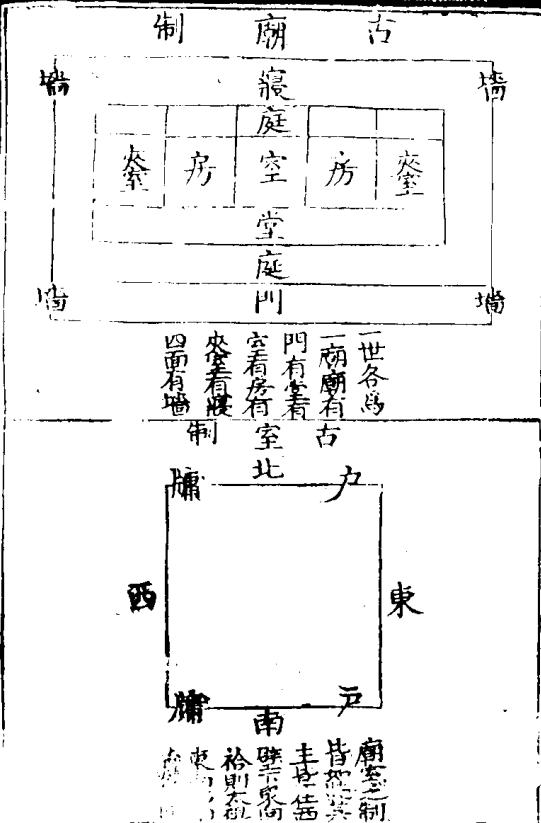 古廟制
墻 墻
寢
庭
夾室 房 室 房 夾室
堂
庭
門
墻 墻
一世各爲
一廟廟有
門有堂有
室有房有
夾室有寢
四面有墻
古室制
北
戶 牖
東 西
戶 牖
南
廟室之制
皆
主皆在西
壁下東向
祫則太祖
東向